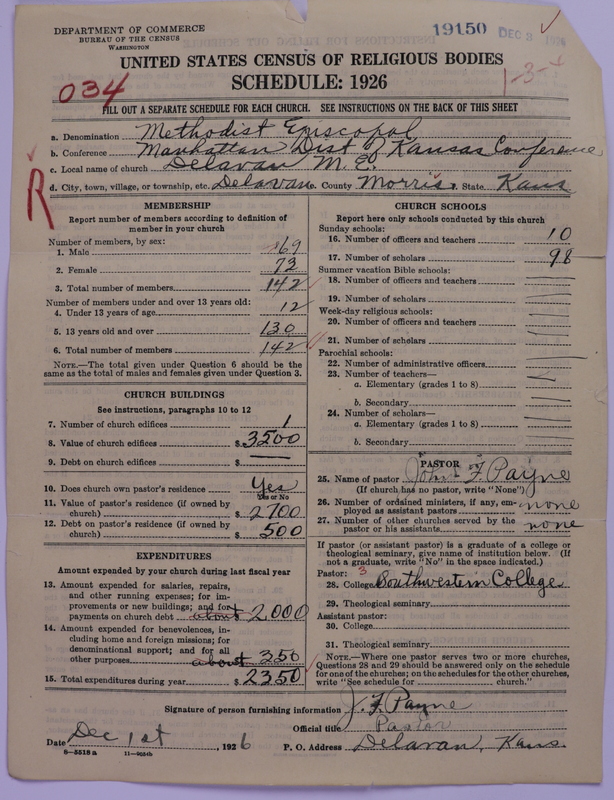 DEPARTMENT OF COMMERCE
BUREAU OF THE CENSUS
WASHINGTON
19150 DEC 3
UNITED STATES CENSUS OF RELIGIOUS BODIES
SCHEDULE: 1926
1-3-4
034
FILL OUT A SEPARATE SCHEDULE FOR EACH CHURCH. SEE INSTRUCTIONS ON THE BACK OF THIS SHEET
a. Denomination Methodist Episcopal
b. Conference Manhattan Dist of Kansas Conference
c. Local name of church Delavan M.E.
d. City, town, village, or township, etc. Delavan e. County Morris f. State Kans
R
MEMBERSHIP
Report number of members according to definition of
member in your church
Number of members, by sex:
1. Male 69
2. Female 73
3. Total number of members 142
Number of members under and over 13 years old:
4. Under 13 years of age 12
5. 13 years old and over 130
6. Total number of members 142
NOTE.—The total given under Question 6 should be the
same as the total of males and females given under Question 3.
CHURCH BUILDINGS
See instructions, paragraphs 10 to 12
7. Number of church edifices 1
8. Value of church edifices $ 3500
9. Debt on church edifices $ —
10. Does church own pastor's residence Yes
Yes or No
11. Value of pastor's residence (if owned by
church) $ 2700
12. Debt on pastor's residence (if owned by
church) $ 500
EXPENDITURES
Amount expended by your church during last fiscal year
13. Amount expended for salaries, repairs,
and other running expenses; for im-
provements or new buildings; and for
payments on church debt about 2,000
14. Amount expended for benevolences, in-
cluding home and foreign missions; for
denominational support; and for all
other purposes about 350
15. Total expenditures during year $ 2350
CHURCH SCHOOLS
Report here only schools conducted by this church
Sunday schools:
16. Number of officers and teachers 10
17. Number of scholars 98
Summer vacation Bible schools:
18. Number of officers and teachers
19. Number of scholars
Week-day religious schools:
20. Number of officers and teachers
21. Number of scholars
Parochial schools:
22. Number of administrative officers
23. Number of teachers—
a. Elementary (grades 1 to 8)
b. Secondary
24. Number of scholars—
a. Elementary (grades 1 to 8)
b. Secondary
PASTOR
25. Name of pastor John F. Payne
(If church has no pastor, write "None")
26. Number of ordained ministers, if any, em-
ployed as assistant pastors none
27. Number of other churches served by the
pastor or his assistants none
If pastor (or assistant pastor) is a graduate of a college or
theological seminary, give name of institution below. (If
not a graduate, write "No" in the space indicated.)
Pastor: 3
28. College Southwestern College
29. Theological seminary
Assistant pastor:
30. College
31. Theological seminary
NOTE.—Where one pastor serves two or more churches,
Questions 28 and 29 should be answered only on the schedule
for one of the churches; on the schedules for the other churches,
write "See schedule for church."
Signature of person furnishing information J. F. Payne
Official title Pastor
Date Dec 1st, 1926 P. O. Address Delavan, Kans.
8-5518 a 11-9034b